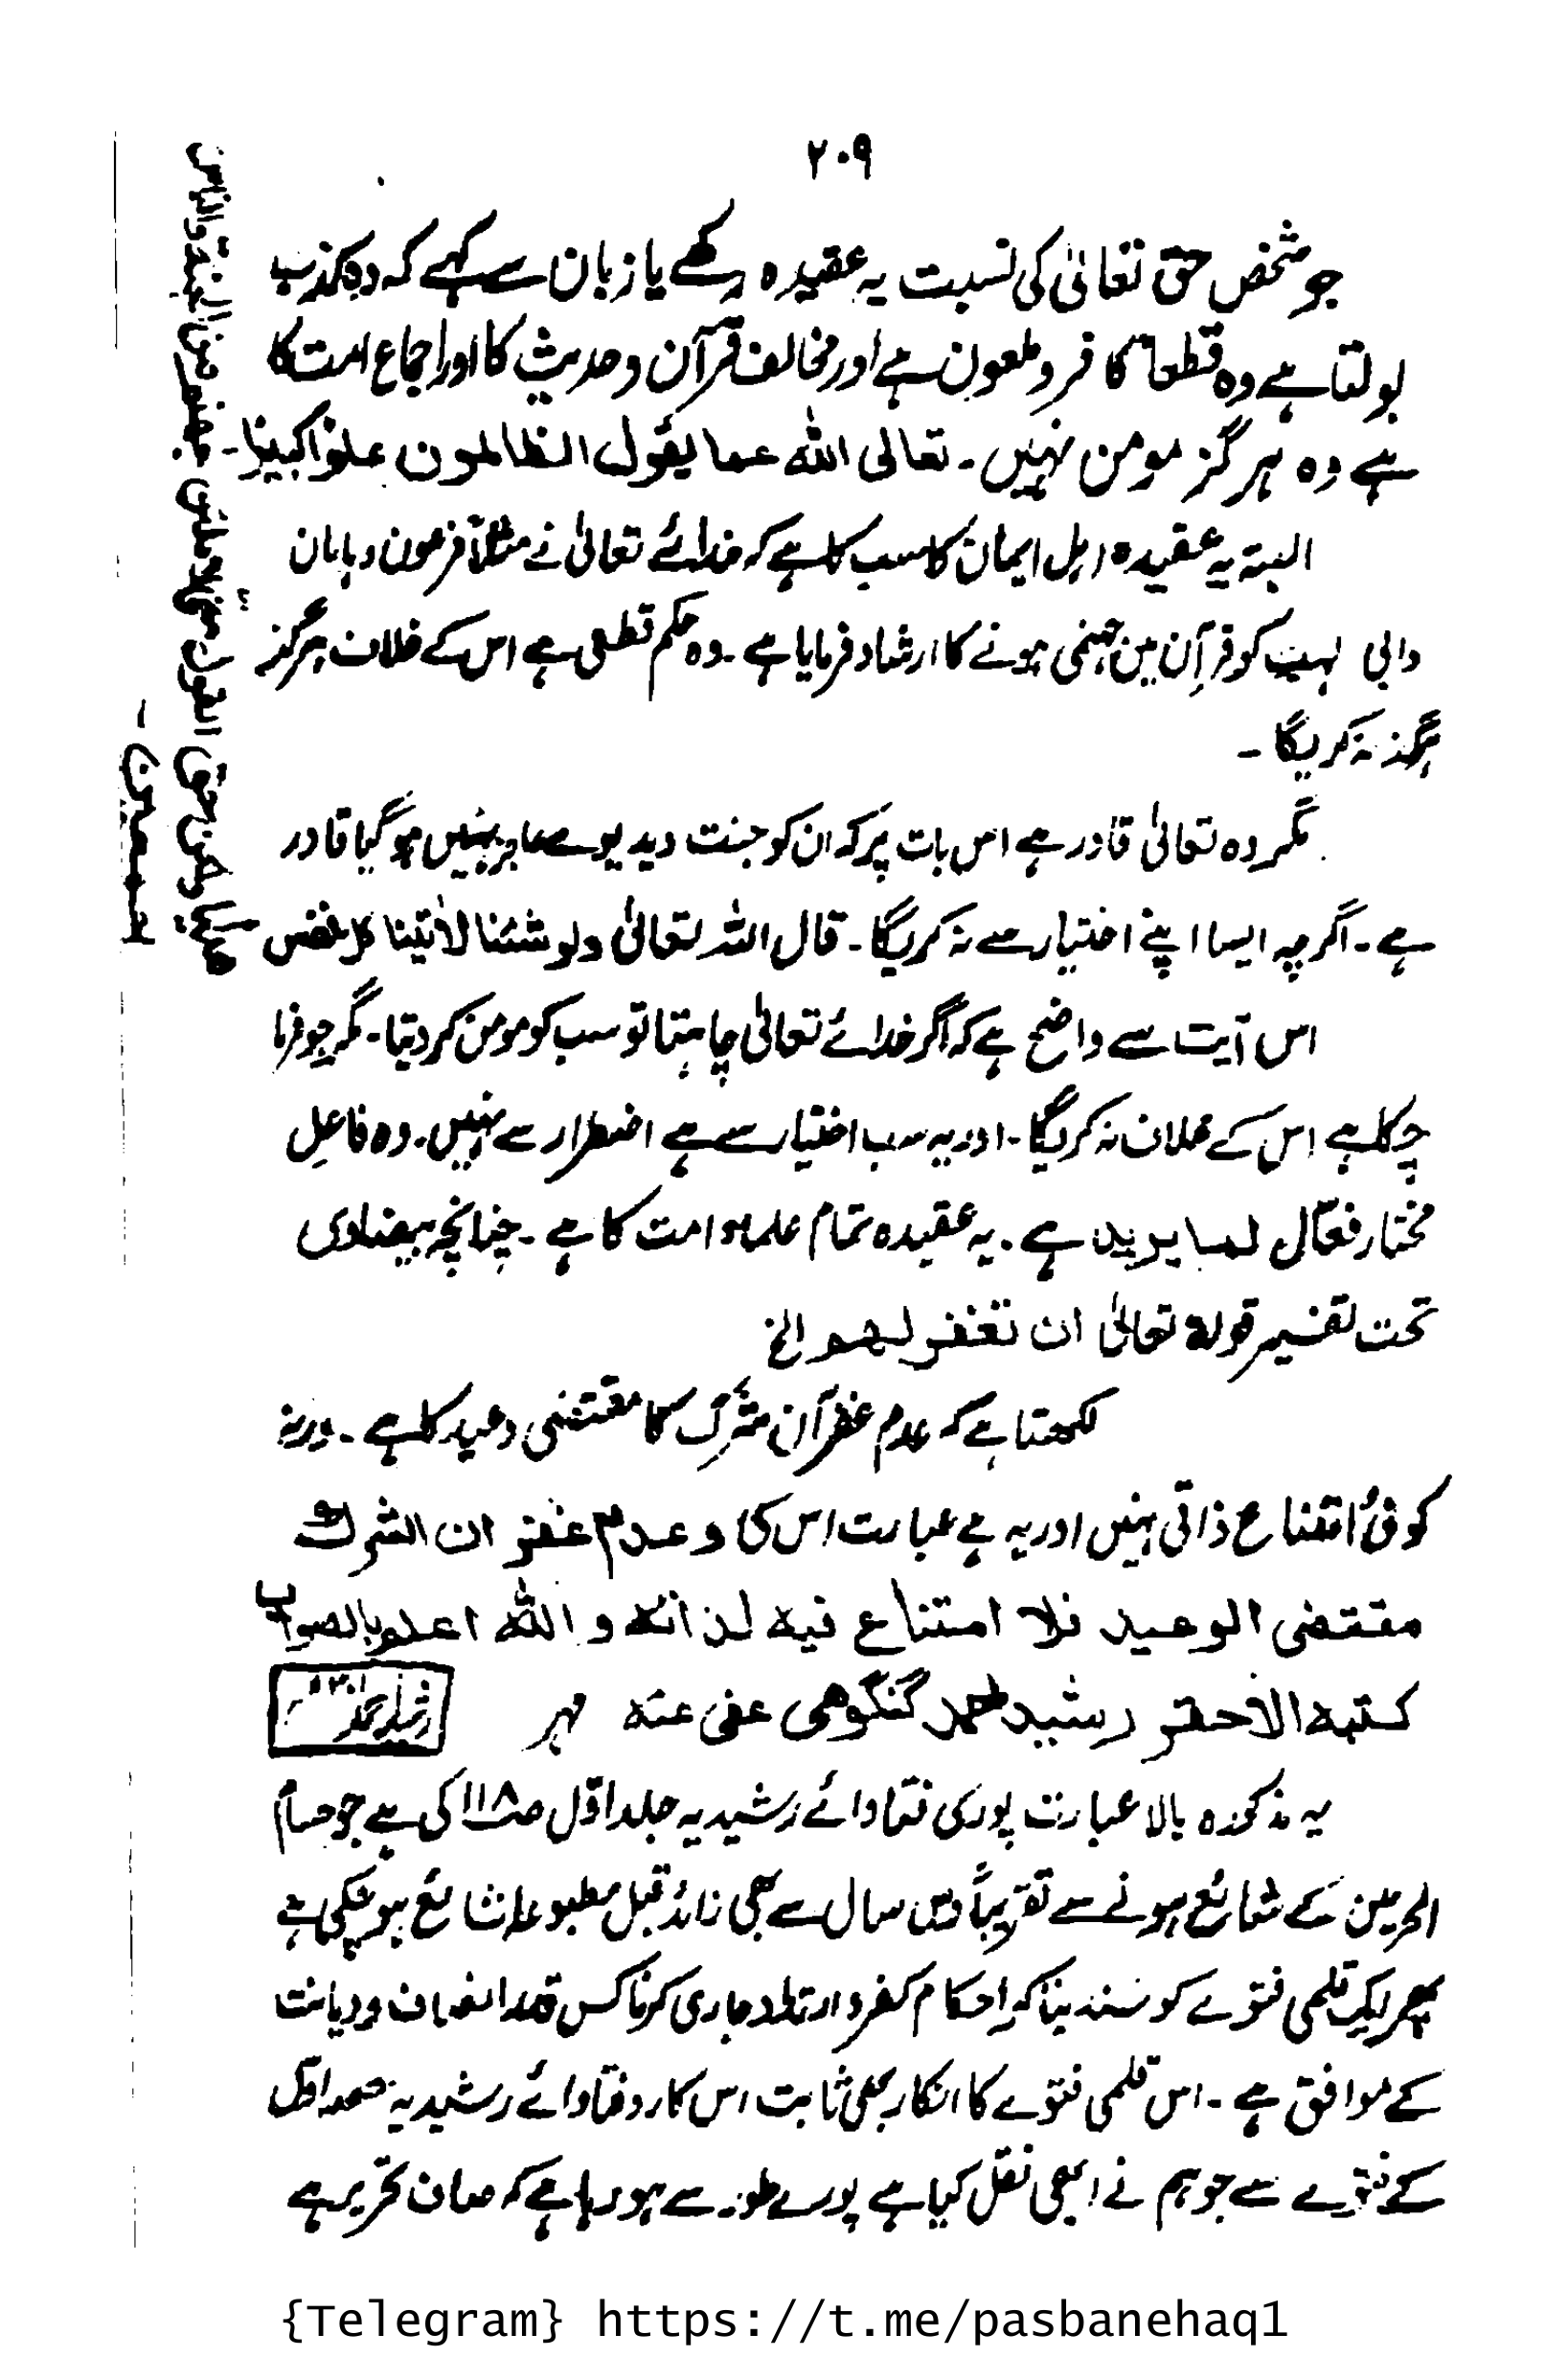 ۲۰۹
جو شخص حق تعالیٰ کی نسبت یہ عقیدہ رکھے یا زبان سے کہے کہ وہ کذب
بولتا ہے وہ قطعاً کافر و ملعون ہے اور مخالف قرآن و حدیث کا اور اجماع امت کا
ہے وہ ہرگز مومن نہیں۔ تعالی اللہ عما یقول الظالمون علوًا کبیرًا۔
البتہ یہ عقیدہ اہل ایمان کا سب کا ہے کہ خدائے تعالیٰ نے مثلاً فرعون و ہامان
وابی لہب کو قرآن میں جہنمی ہونے کا ارشاد فرمایا ہے۔ وہ حکم قطعی ہے اس کے خلاف ہرگز
ہرگز نہ کریگا۔
مگر وہ تعالیٰ قادر ہے اس بات پر کہ ان کو جنت دیدیوے عاجز نہیں ہوگیا قادر
ہے۔ اگرچہ ایسا اپنے اختیار سے نہ کریگا۔ قال اللہ تعالیٰ ولو شئنا لاٰتینا کل نفس
ھدٰىھا ولکن حق القول منی لاملئن جھنم من الجنۃ والناس
اجمعین۔
اس آیت سے واضح ہے کہ اگر خدائے تعالیٰ چاہتا تو سب کو مومن کر دیتا۔ مگر جو فرما
چکا ہے اس کے خلاف نہ کریگا۔ اور یہ سب اختیار سے ہے اضطرار سے نہیں۔ وہ فاعل
مختار فعّال لما یرید ہے۔ یہ عقیدہ تمام علماء امت کا ہے۔ چنانچہ بیضاوی
تحت تفسیر قولہ تعالیٰ ان تغفر لھم الخ
لکھتا ہے کہ عدم غفران شرک کا مقتضی وعید کا ہے۔ ورنہ
کوئی امتناع ذاتی نہیں اور یہ ہے عبارت اس کی وعدم غفران الشرک
مقتضی الوعید فلا امتناع فیہ لذاتہ و اللہ اعلم بالصواب
کتبہ الاحقر رشید احمد گنگوھی عفی عنہ مہر
رشید احمد
یہ مذکورہ بالا عبارت پوری فتاوائے رشیدیہ جلد اوّل ص۱۱۸ کی ہے جو حسام
الحرمین کے شائع ہونے سے تقریباً دس سال سے بھی زائد قبل مطبوعہ شائع ہو چکی ہے
پھر ایک قلمی فتوے کو سند بنا کر احکام کفر و ارتداد جاری کرنا کس قدر انصاف و دیانت
کے موافق ہے۔ اس قلمی فتوے کا انکار بھی ثابت اس کا رد فتاوائے رشیدیہ حصہ اوّل
کے فتوے سے جو ہم نے ابھی نقل کیا ہے پورے طور سے ہو رہا ہے کہ صاف تحریر ہے
{Telegram} https://t.me/pasbanehaq1